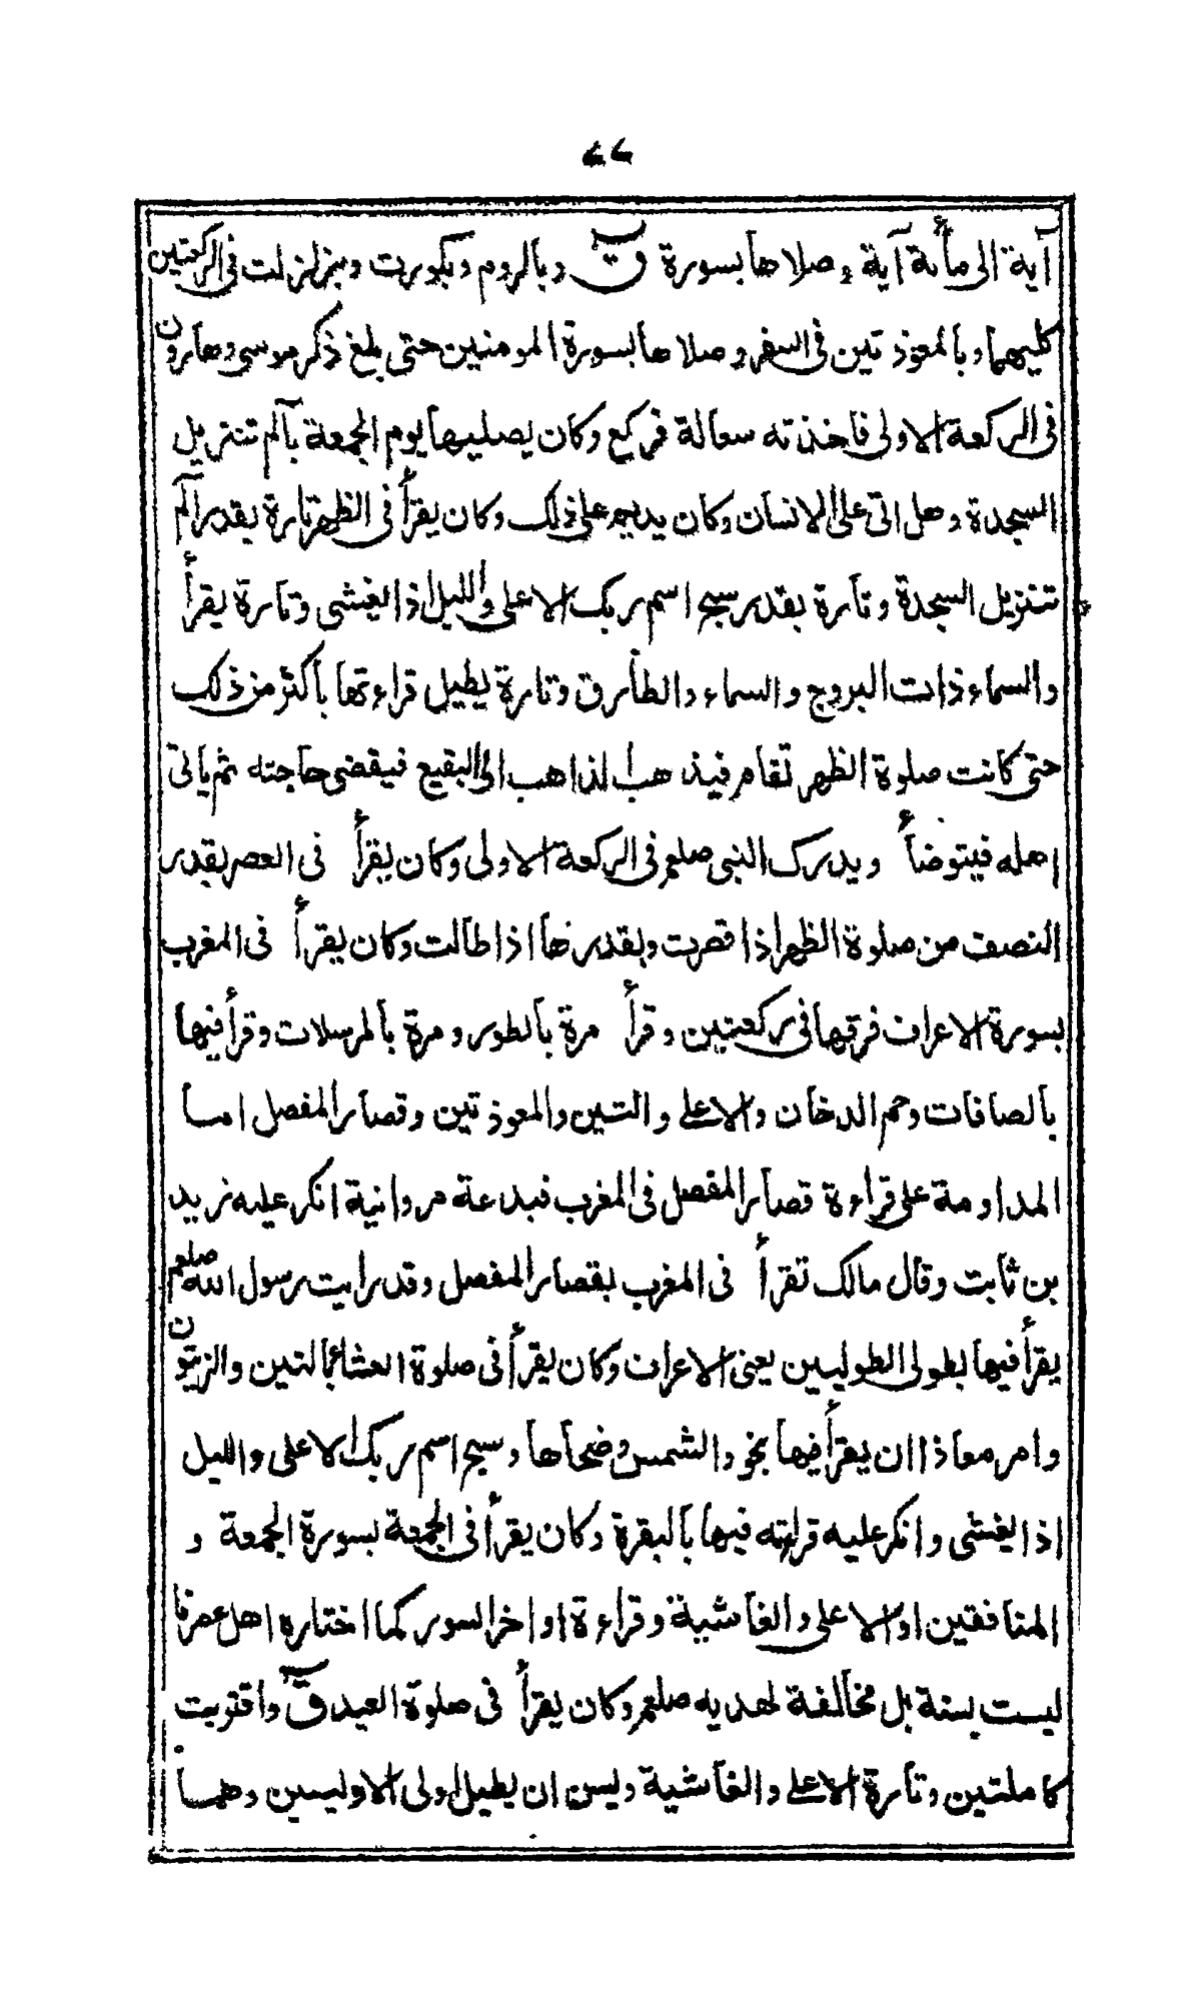 ٤٤
آية الى مأىة آية وصلاها بسورة قٓ وبالروم وبكورت وبزلزلت فى الركعتين
كليهما وبالمعوذتين فى السفر وصلاها بسورة المومنين حتى بلغ ذكر موسى وهارون
فى الركعة الاولى فاخذته سعالة فركع وكان يصليها يوم الجمعة بآلم تنزيل
السجدة وهل اتى على الانسان وكان يديم على ذلك وكان يقرأ فى الظهر تارة بقدر آلم
تنزيل السجدة وتارة بقدر سبح اسم ربك الاعلى والليل اذا يغشى وتارة يقرأ
والسماء ذات البروج والسماء والطارق وتارة يطيل قراءتها بأكثر من ذلك
حتى كانت صلوة الظهر تقام فيذهب الذاهب الى البقيع فيقضى حاجته ثم يأتى
اهله فيتوضأ ويدرك النبى صلعم فى الركعة الاولى وكان يقرأ فى العصر بقدر
النصف من صلوة الظهر اذا قصرت وبقدرها اذا طالت وكان يقرأ فى المغرب
بسورة الاعراف فرقها فى ركعتين وقرأ مرة بالطور ومرة بالمرسلات وقرأ فيها
بالصافات وحم الدخان والاعلى والتين والمعوذتين وقصار المفصل اما
المداومة على قراءة قصار المفصل فى المغرب فبدعة مروانية انكر عليه زيد
بن ثابت وقال مالك تقرأ فى المغرب بقصار المفصل وقد رايت رسول الله صلعم
يقرأ فيها بطولى الطوليين يعنى الاعراف وكان يقرأ فى صلوة العشا بالتين والزيتون
وامر معاذا ان يقرأ فيها بنحو والشمس وضحاها وسبح اسم ربك الاعلى والليل
اذا يغشى وانكر عليه قراءته فيها بالبقرة وكان يقرأ فى الجمعة بسورة الجمعة و
المنافقين او الاعلى والغاشية وقراءة اواخر السور كما اختاره اهل عصرنا
ليست بسنة بل مخالفة لهديه صلعم وكان يقرأ فى صلوة العيد قٓ واقتربت
كاملتين وتارة الاعلى والغاشية وليسن ان يطيل اولى الاوليين وهما